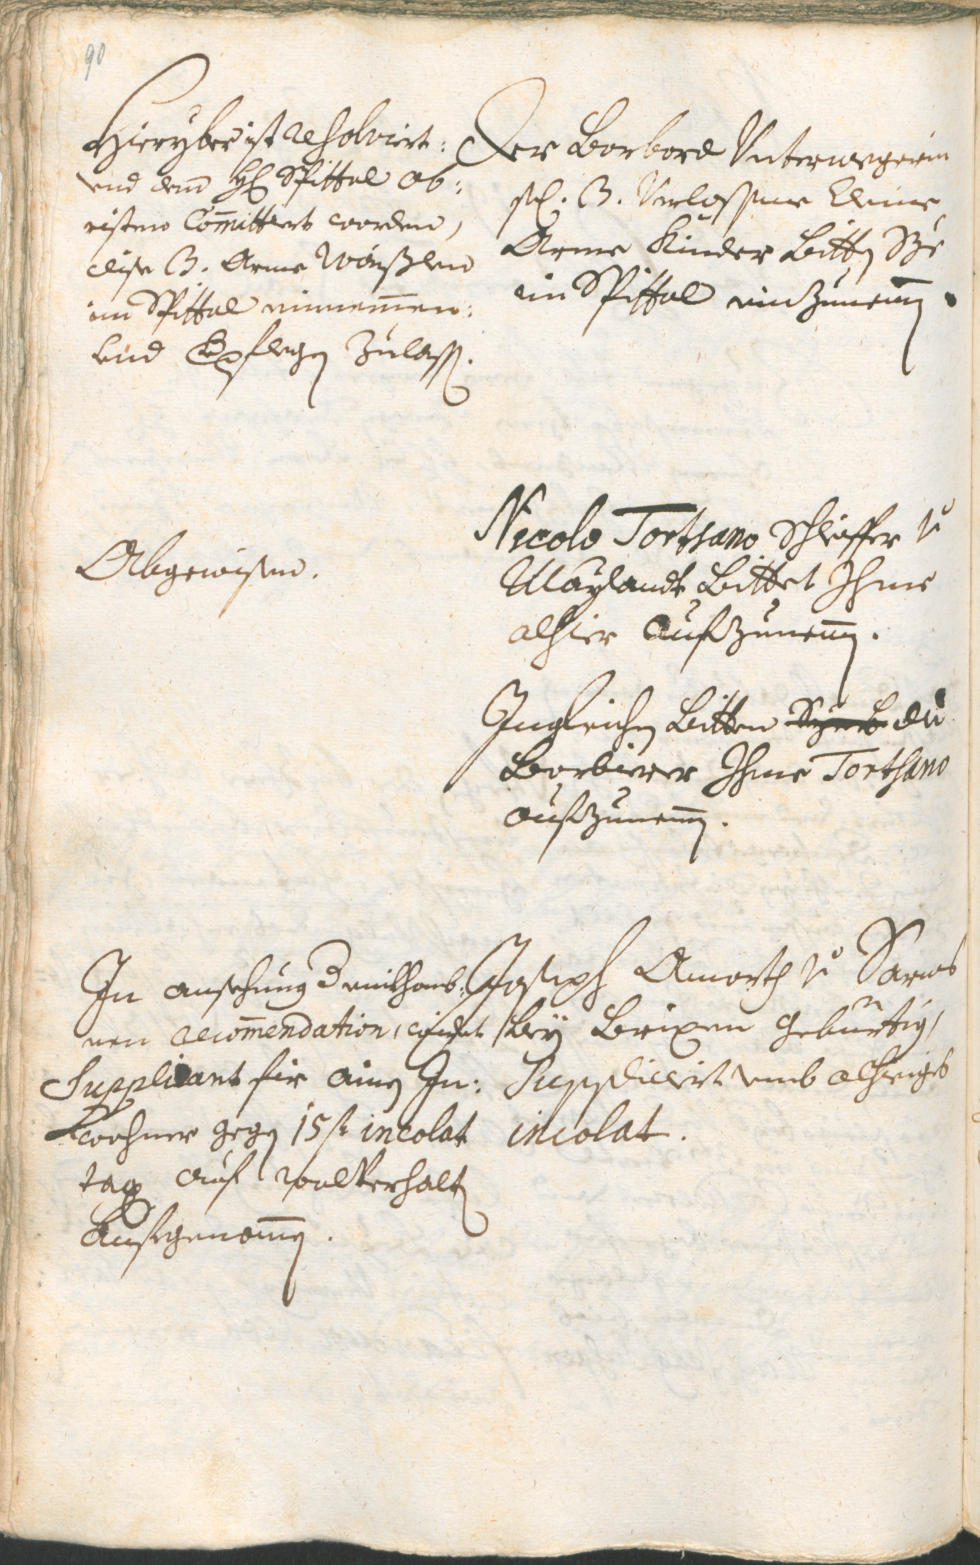 90
Hieryber ist resolvirt:
und dem H: Spittal ob:
risten Committiert worden,
dise 3. Arme Waißlen
im Spittal einnemmen:
und Verpflegen zulassen.
Der Barbara Unterwegerin
sel. 3. Verlassne kleine
Arme Kinder bitten Sye
in Spittal einzunemen.
Abgewisen.
Nicolo Tortsano Schleiffer von
Maylandt bittet Ihme
alhier aufzunemen.
Ingleichen bitten die
Barbierer Ihme Tortsano
aufzunemen.
In ansehung
nen recommendation, ist
Supplicant für ainen In:
wohner gegen 15 f incolat
tax auf wolverhalten
aufgenomen.
Joseph Amorth von Sarns
bey Brixen gebürtig,
Suppliciert umb alhieiges
incolat.